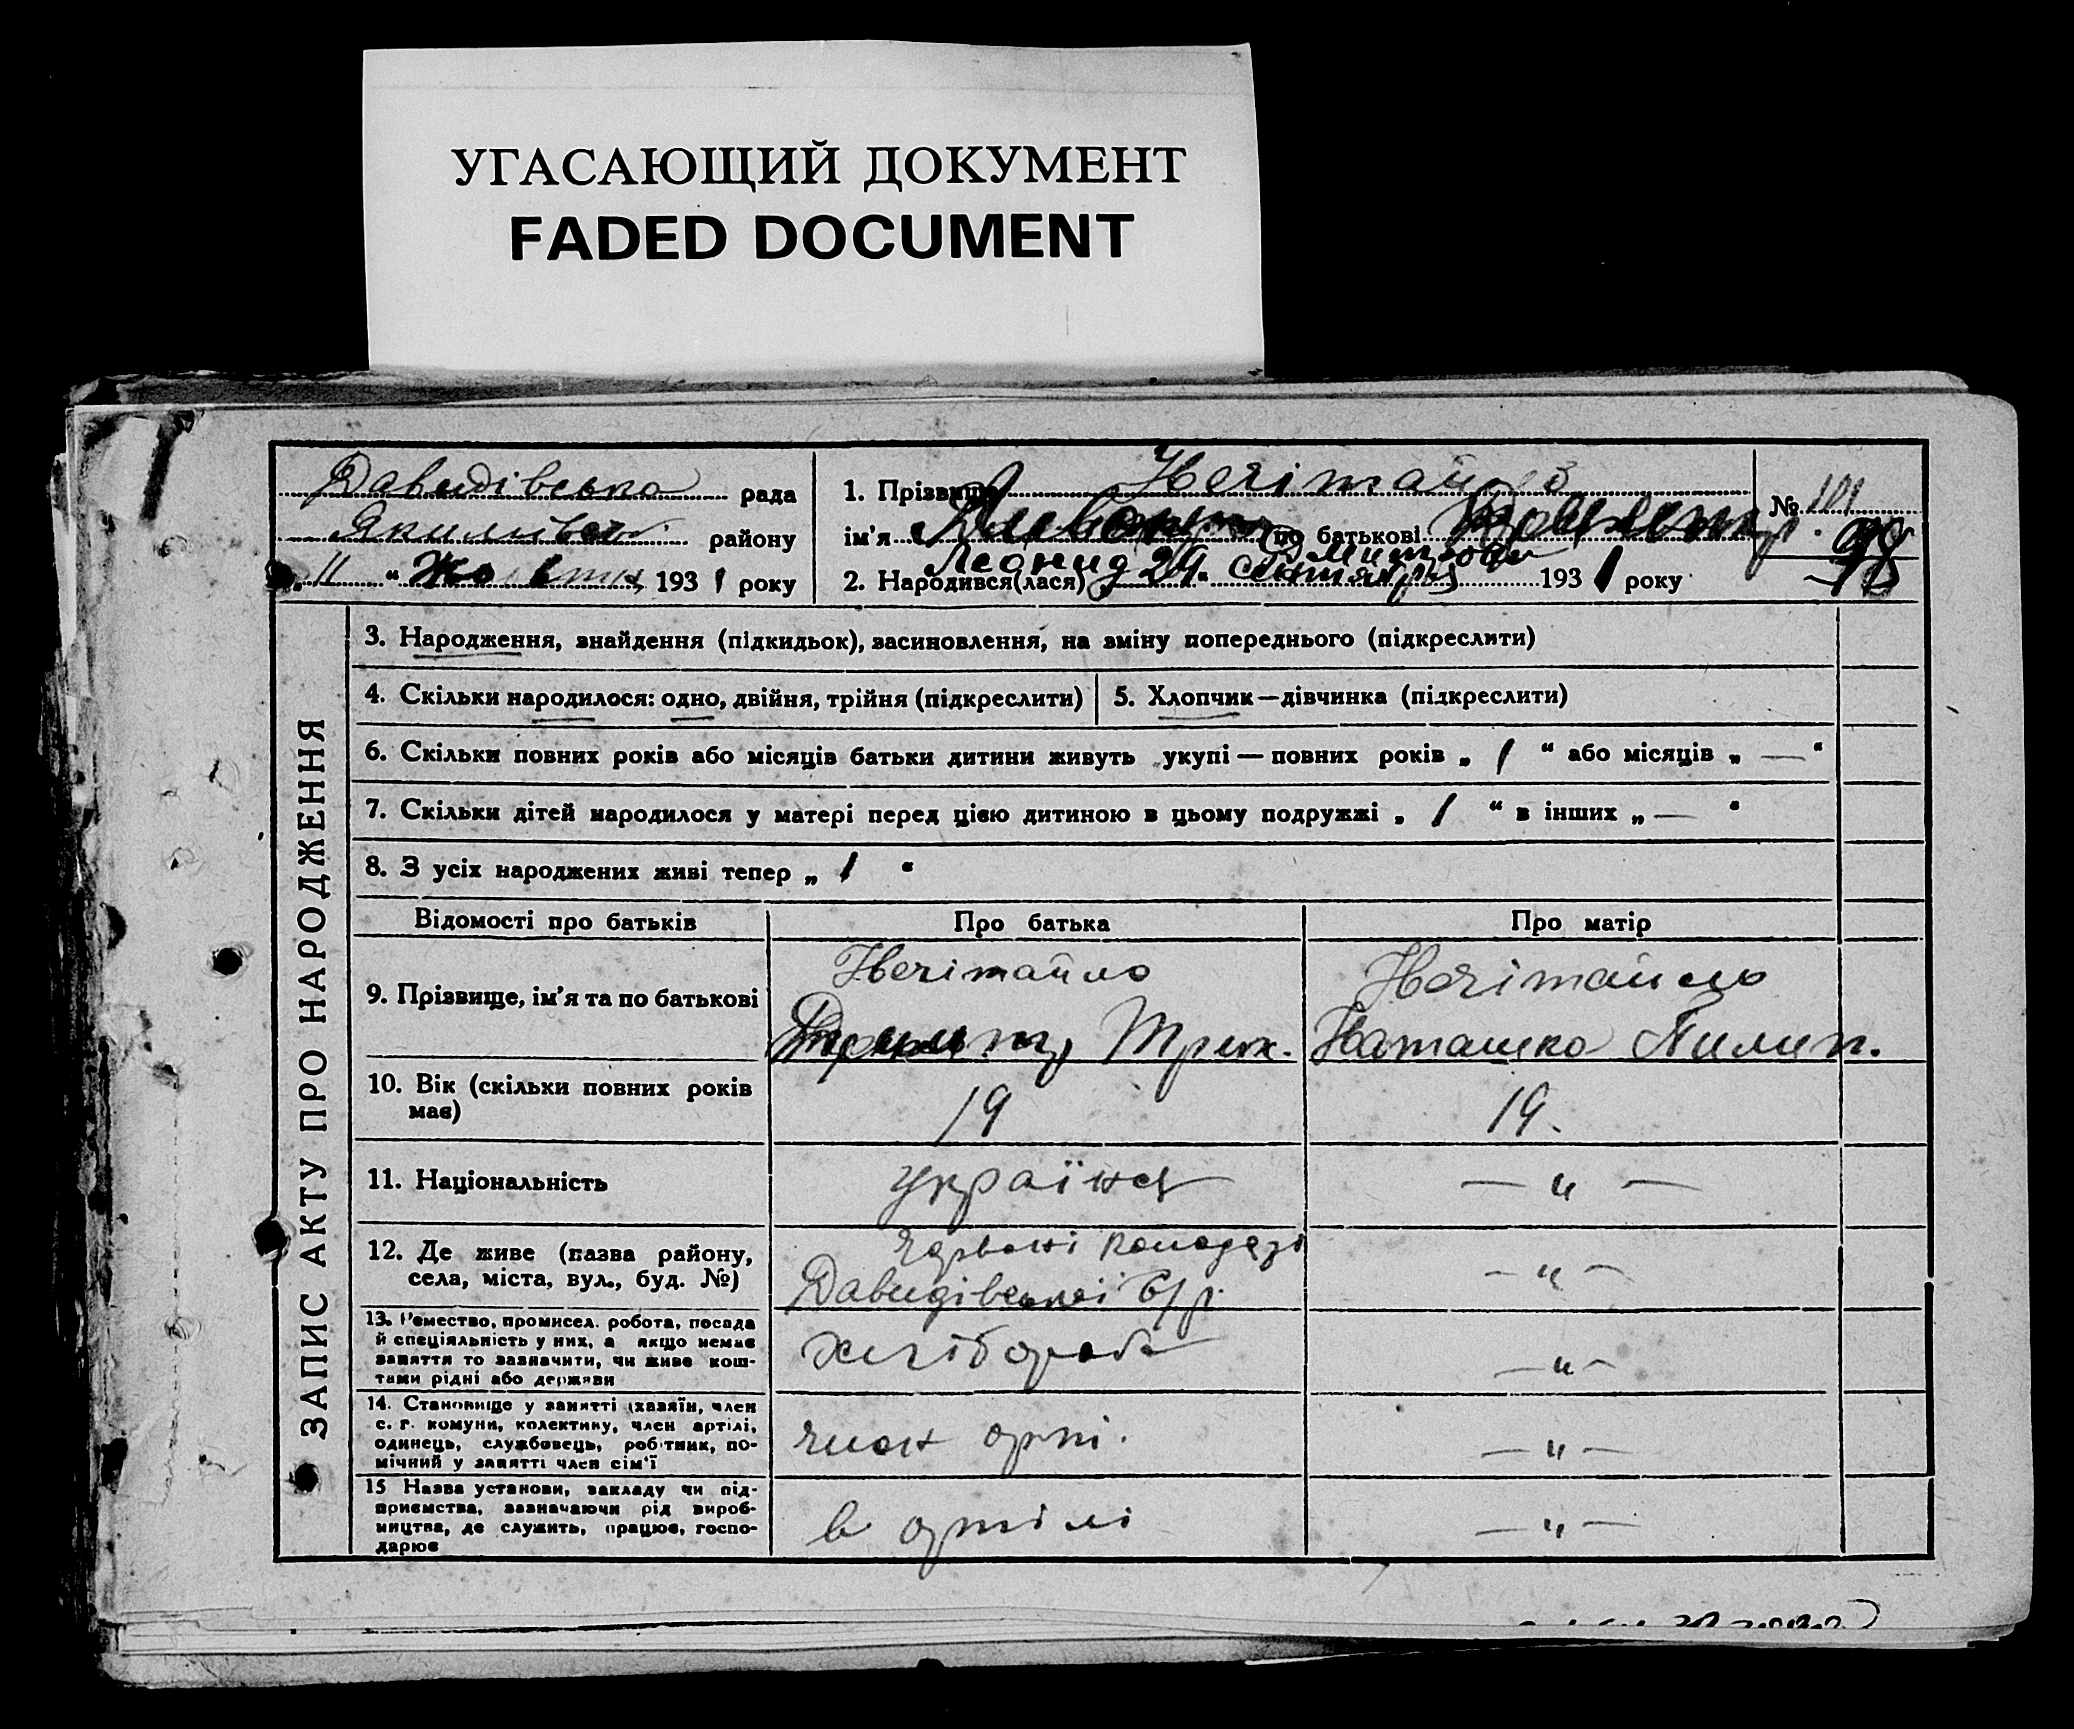 УГАСАЮЩИЙ ДОКУМЕНТ
FADED DOCUMENT
Давидівська рада
району
„ 11 “ Жовтня 1931 року
1. Прізвище Нечітайло
ім'я по батькові
Леонид
2. Народився(лася) 29 Сентября 1931 року
№ 101
98
ЗАПИС АКТУ ПРО НАРОДЖЕННЯ
3. Народження, знайдення (підкидьок), засиновлення, на зміну попереднього (підкреслити)
4. Скільки народилося: одно, двійня, трійня (підкреслити)
5. Хлопчик—дівчинка (підкреслити)
6. Скільки повних років або місяців батьки дитини живуть укупі — повних років „ 1 “ або місяців „ — “
7. Скільки дітей народилося у матері перед цією дитиною в цьому подружжі „ 1 “ в інших „ — “
8. З усіх народжених живі тепер „ 1 “
Відомості про батьків
Про батька
Про матір
9. Прізвище, ім'я та по батькові
Нечітайло
Нечітайло
Наташка Пилип.
10. Вік (скільки повних років
має)
19
19.
11. Національність
україна
— „ —
12. Де живе (назва району,
села, міста, вул., буд. №)
Давидівської с/р.
— „ —
13. Ремество, промисел. робота, посада
й спеціяльність у них, а якщо немає
заняття то зазначити, чи живе кош-
тами рідні або держави
хлібороб
— „ —
14. Становище у занятті (хазяїн, член
с. г. комуни, колективу, член артілі,
одинець, службовець, робітник, по-
мічний у занятті член сім'ї
член арті.
— „ —
15 Назва установи, закладу чи під-
приємства, зазначаючи рід вироб-
ництва, де служить, працює, госпо-
дарює
в артілі
— „ —